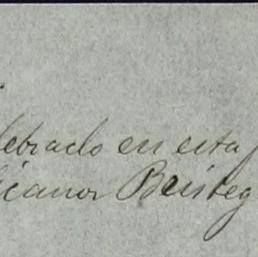 lebrado en esta
icanor Beisteg